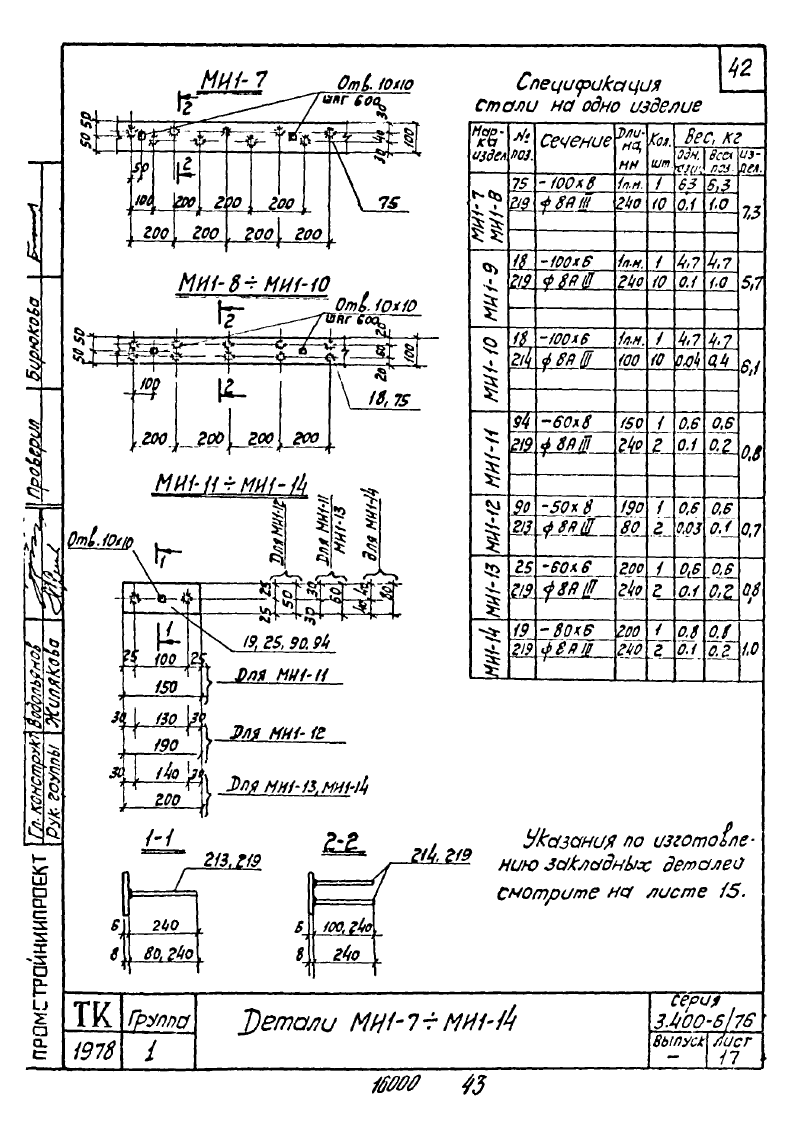 42
МИ1-7
Отв. 10х10
шаг 600
2
2
50 50
30 40 30
100
50
100 200 200 200
75
200 200 200
МИ1-8÷МИ1-10
Отв. 10х10
шаг 600
2
2
50 50
20 60 20
100
100
18, 75
200 200 200 200
МИ1-11÷МИ1-14
Для МИ1-12
Для МИ1-11
МИ1-13
Для МИ1-14
Отв. 10х10
1
1
25 25
50
30 30
60
40 40
80
19, 25, 90, 94
25 100 25
150
Для МИ1-11
30 130 30
190
Для МИ1-12
30 140 30
200
Для МИ1-13, МИ1-14
1-1
213, 219
6 240
8 80, 240
2-2
214, 219
6 100, 240
8 240
Спецификация
стали на одно изделие
Марка издел. № поз. Сечение Длина, мм Кол. шт Вес, кг
одн. поз. Всех поз. Издел.
МИ1-7 МИ1-8 75 -100х8 1п.м. 1 6,3 6,3 7,3
219 ф8АIII 240 10 0.1 1.0
МИ1-9 18 -100х6 1п.м. 1 4,7 4,7 5,7
219 ф8АIII 240 10 0.1 1.0
МИ1-10 18 -100х6 1п.м. 1 4,7 4,7 6,1
214 ф8АIII 100 10 0.04 0,4
МИ1-11 94 -60х8 150 1 0,6 0,6 0,8
219 ф8АIII 240 2 0.1 0.2
МИ1-12 90 -50х8 190 1 0,6 0,6 0,7
213 ф8АIII 80 2 0.03 0.1
МИ1-13 25 -60х6 200 1 0,6 0,6 0,8
219 ф8АIII 240 2 0.1 0,2
МИ1-14 19 -80х6 200 1 0.8 0.8 1.0
219 ф8АIII 240 2 0.1 0.2
Указания по изготовле-
нию закладных деталей
смотрите на листе 15.
Гл. конструкт. Водопьянов
Рук. группы Жилякова
Проверил Бирюкова
ПРОМСТРОЙНИИПРОЕКТ
ТК
1978
Группа
1
Детали МИ1-7÷МИ1-14
Серия
3.400-6/76
Выпуск
-
Лист
17
16000 43